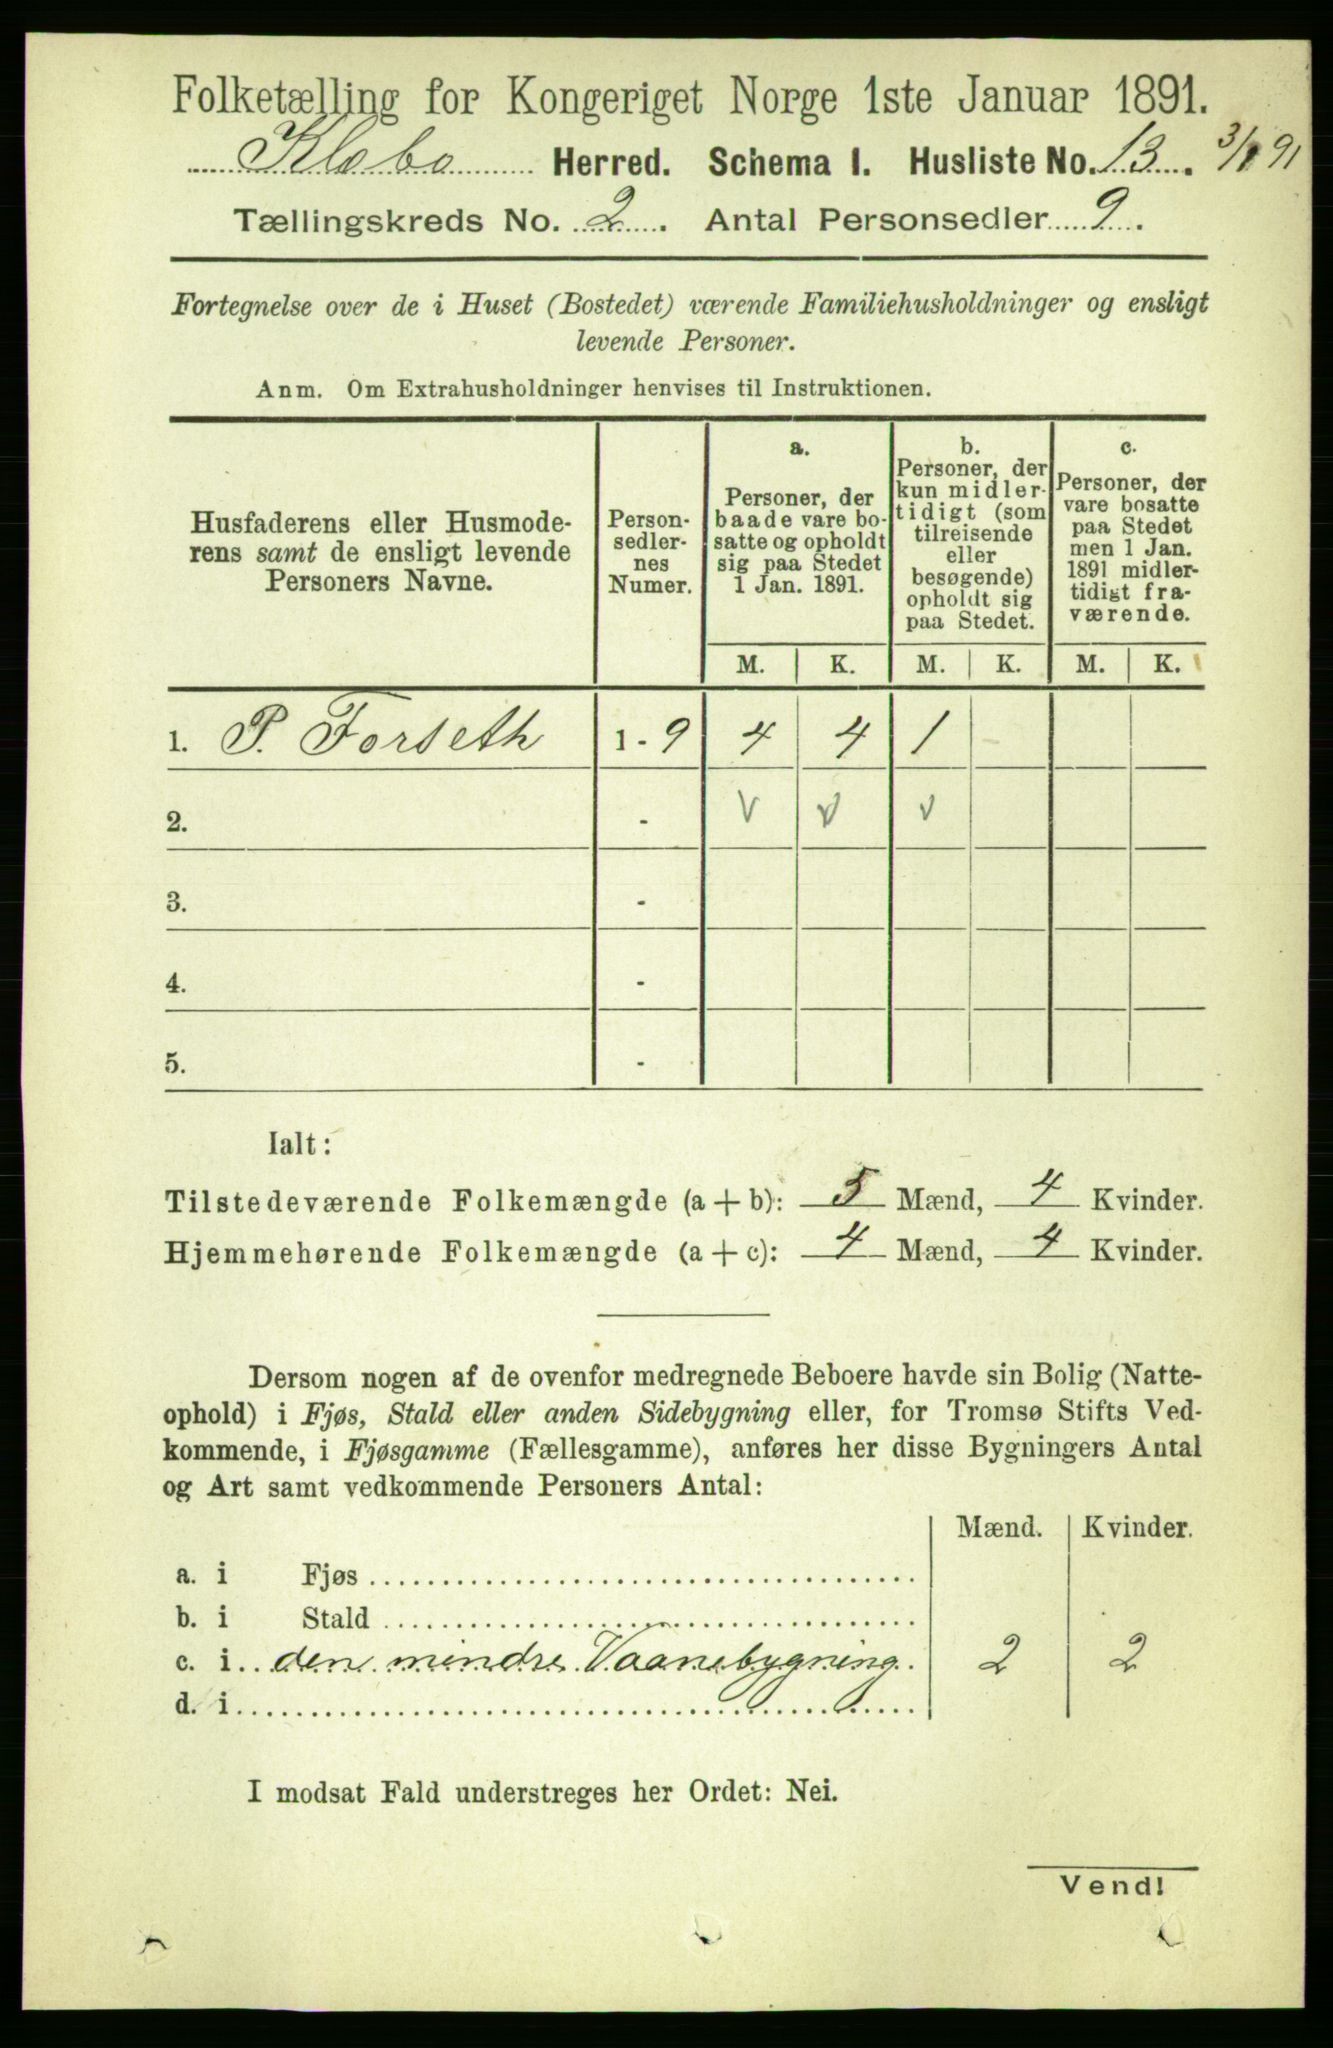 Folketælling for Kongeriget Norge 1ste Januar 1891.
Klæbo Herred. Schema I. Husliste No. 13. 3/1 91
Tællingskreds No. 2. Antal Personsedler 9.
Fortegnelse over de i Huset (Bostedet) værende Familiehusholdninger og ensligt
levende Personer.
Anm. Om Extrahusholdninger henvises til Instruktionen.
Husfaderens eller Husmode-
rens samt de ensligt levende
Personers Navne.
Person-
sedler-
nes
Numer.
a.
Personer, der
baade vare bo-
satte og opholdt
sig paa Stedet
1 Jan. 1891.
b.
Personer, der
kun midler-
tidigt (som
tilreisende
eller
besøgende)
opholdt sig
paa Stedet.
c.
Personer, der
vare bosatte
paa Stedet
men 1 Jan.
1891 midler-
tidigt fra-
værende.
M. K. M. K. M. K.
1. P. Forseth 1 - 9 4 4 1 -
2. - V V V
3. -
4. -
5. -
Ialt:
Tilstedeværende Folkemængde (a + b): 5 Mænd, 4 Kvinder.
Hjemmehørende Folkemængde (a + c): 4 Mænd, 4 Kvinder.
Dersom nogen af de ovenfor medregnede Beboere havde sin Bolig (Natte-
ophold) i Fjøs, Stald eller anden Sidebygning eller, for Tromsø Stifts Ved-
kommende, i Fjøsgamme (Fællesgamme), anføres her disse Bygningers Antal
og Art samt vedkommende Personers Antal:
Mænd. Kvinder.
a. i Fjøs
b. i Stald
c. i den mindre Vaanebygning 2 2
d. i
I modsat Fald understreges her Ordet: Nei.
Vend!